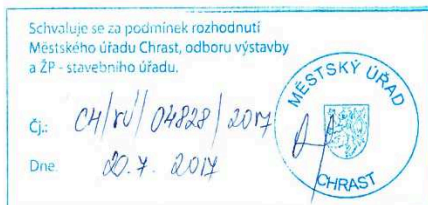 Schvaluje se za podmínek rozhodnutí
Městského úřadu Chrast, odboru výstavby
a ŽP - stavebního úřadu.
Čj.: CH/VÚ/04828/2017
Dne 20.7.2017
MĚSTSKÝ ÚŘAD
CHRAST